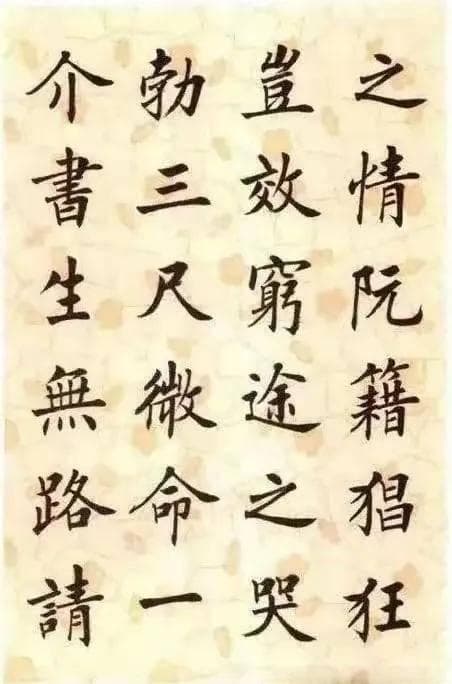 之情阮籍猖狂
豈效窮途之哭
勃三尺微命一
介書生無路請